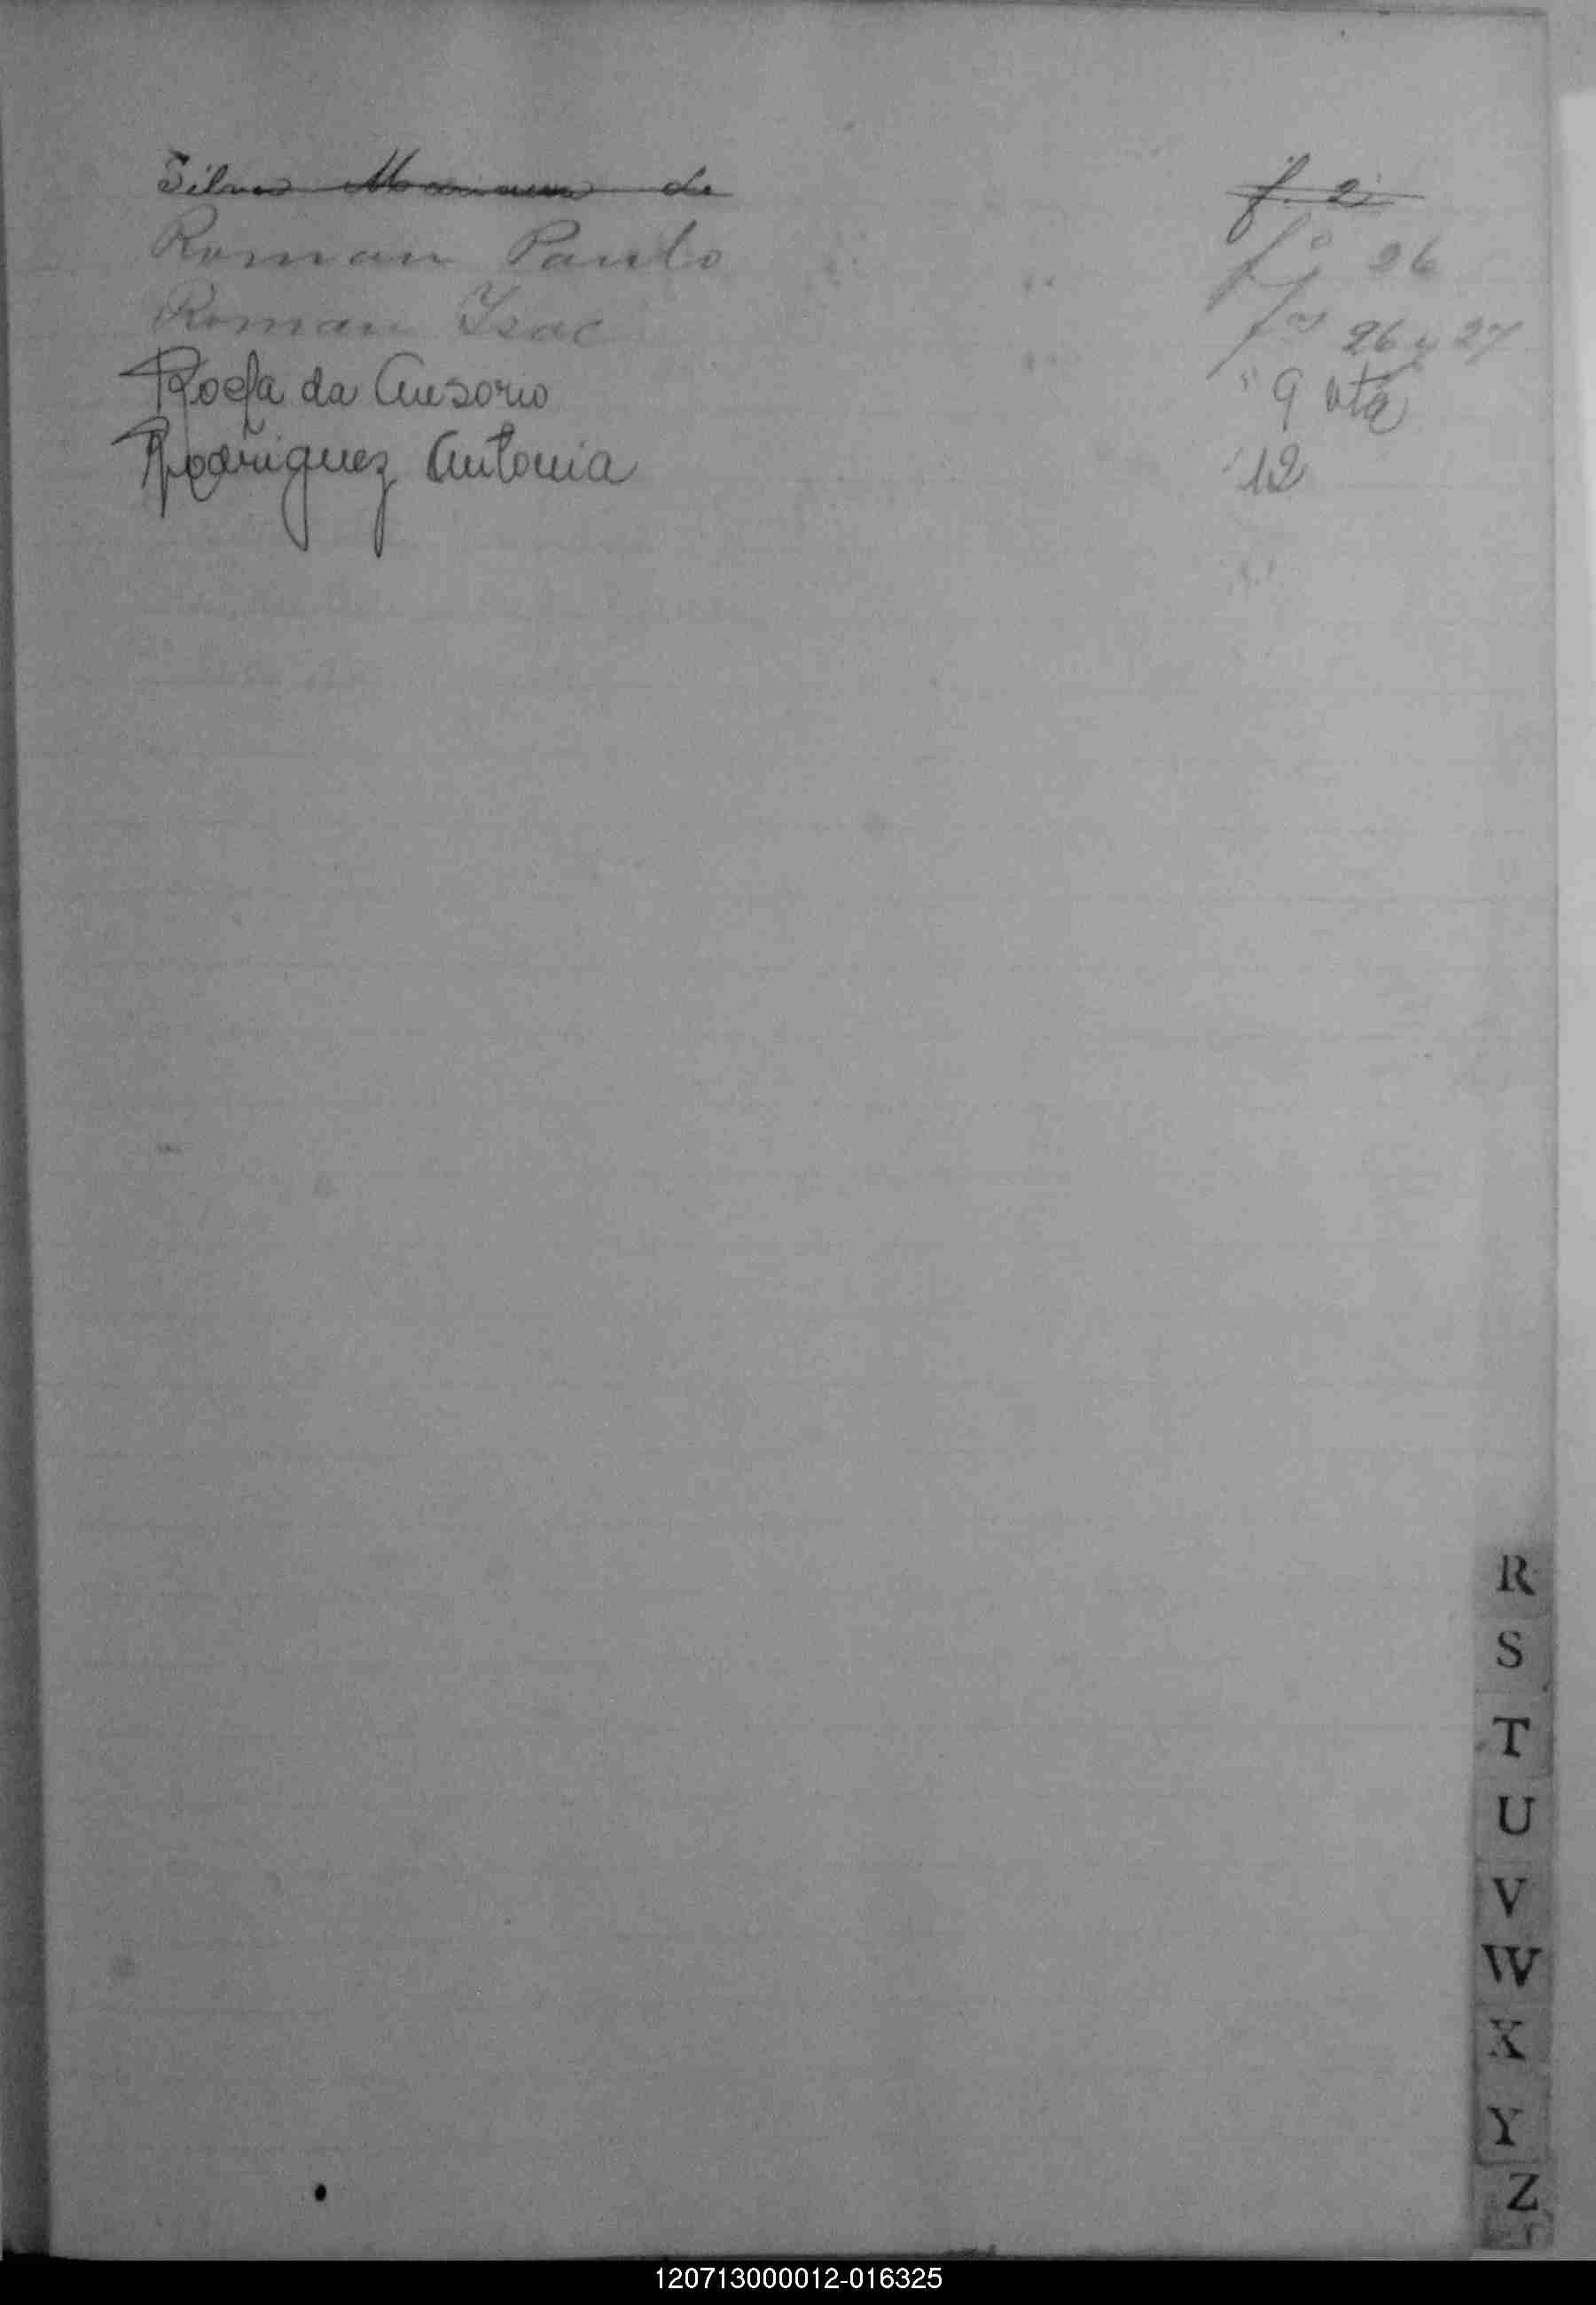 ~~Silva Mariana de~~ ~~f. 2~~
Roman Paulo fjº 26
Roman Isac fjs 26 y 27
Roefa da Ausorio " 9 vta
Rodriguez Antonia " 12
R
S
T
U
V
W
X
Y
Z
120713000012-016325